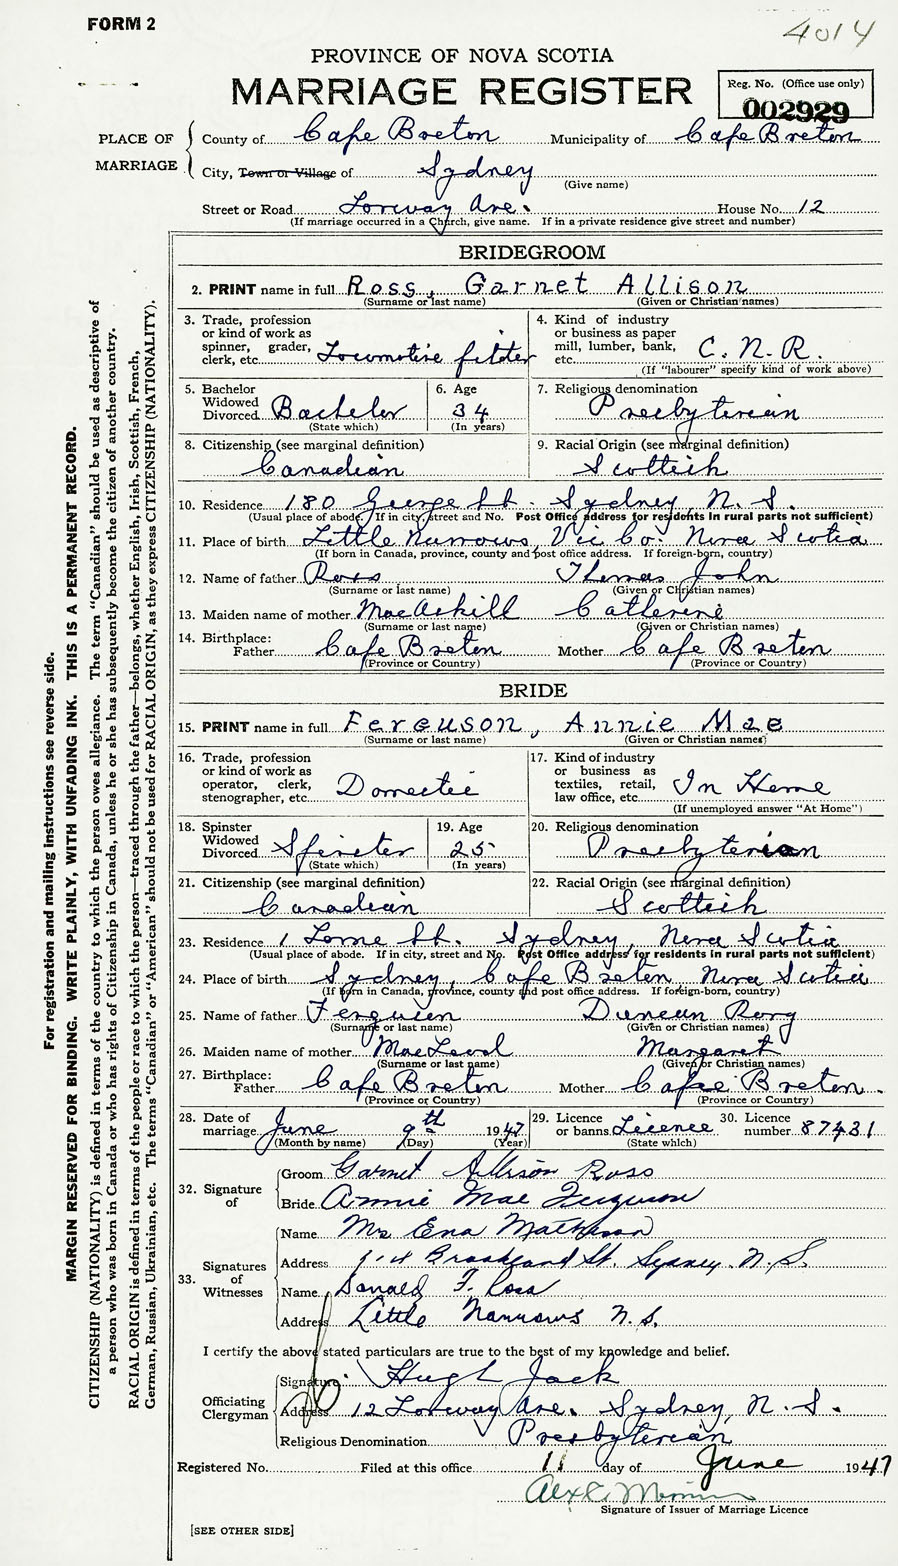 FORM 2
4014
PROVINCE OF NOVA SCOTIA
MARRIAGE REGISTER
Reg. No. (Office use only)
002929
PLACE OF MARRIAGE
County of Cape Breton Municipality of Cape Breton
City, Town or Village of Sydney
(Give name)
Street or Road Lorway Ave. House No. 12
(If marriage occurred in a Church, give name. If in a private residence give street and number)
BRIDEGROOM
2. PRINT name in full Ross, Garnet Allison
(Surname or last name) (Given or Christian names)
3. Trade, profession or kind of work as spinner, grader, clerk, etc. Locomotive fitter
4. Kind of industry or business as paper mill, lumber, bank, etc. C. N. R.
(If "labourer" specify kind of work above)
5. Bachelor Widowed Divorced Bachelor
(State which)
6. Age 34
(In years)
7. Religious denomination Presbyterian
8. Citizenship (see marginal definition) Canadian
9. Racial Origin (see marginal definition) Scottish
10. Residence 180 George St. Sydney, N. S.
(Usual place of abode. If in city, street and No. Post Office address for residents in rural parts not sufficient)
11. Place of birth Little Narrows, Vic Co. Nova Scotia
(If born in Canada, province, county and post office address. If foreign-born, country)
12. Name of father Ross Thomas John
(Surname or last name) (Given or Christian names)
13. Maiden name of mother MacAskill Catherine
(Surname or last name) (Given or Christian names)
14. Birthplace: Father Cape Breton Mother Cape Breton
(Province or Country) (Province or Country)
BRIDE
15. PRINT name in full Ferguson, Annie Mae
(Surname or last name) (Given or Christian names)
16. Trade, profession or kind of work as operator, clerk, stenographer, etc. Domestic
17. Kind of industry or business as textiles, retail, law office, etc. In Home
(If unemployed answer "At Home")
18. Spinster Widowed Divorced Spinster
(State which)
19. Age 25
(In years)
20. Religious denomination Presbyterian
21. Citizenship (see marginal definition) Canadian
22. Racial Origin (see marginal definition) Scottish
23. Residence 1 Lorne St. Sydney, Nova Scotia
(Usual place of abode. If in city, street and No. Post Office address for residents in rural parts not sufficient)
24. Place of birth Sydney, Cape Breton Nova Scotia
(If born in Canada, province, county and post office address. If foreign-born, country)
25. Name of father Ferguson Duncan Rory
(Surname or last name) (Given or Christian names)
26. Maiden name of mother MacLeod Margaret
(Surname or last name) (Given or Christian names)
27. Birthplace: Father Cape Breton Mother Cape Breton.
(Province or Country) (Province or Country)
28. Date of marriage June 9th 1947
(Month by name) (Day) (Year)
29. Licence or banns Licence
(State which)
30. Licence number 87431
32. Signature of
Groom Garnet Allison Ross
Bride Annie Mae Ferguson
33. Signatures of Witnesses
Name Mrs Ena Matheson
Address Brookland St. Sydney. N. S.
Name Donald F. Ross
Address Little Narrows N. S.
I certify the above stated particulars are true to the best of my knowledge and belief.
Officiating Clergyman
Signature Hugh Jack
Address 12 Lorway Ave. Sydney, N. S.
Religious Denomination Presbyterian
Registered No. Filed at this office 11 day of June 1947
Signature of Issuer of Marriage Licence
[SEE OTHER SIDE]
For registration and mailing instructions see reverse side.
MARGIN RESERVED FOR BINDING. WRITE PLAINLY, WITH UNFADING INK. THIS IS A PERMANENT RECORD.
CITIZENSHIP (NATIONALITY) is defined in terms of the country to which the person owes allegiance. The term "Canadian" should be used as descriptive of
a person who was born in Canada or who has rights of Citizenship in Canada, unless he or she has subsequently become the citizen of another country.
RACIAL ORIGIN is defined in terms of the people or race to which the person—traced through the father—belongs, whether English, Irish, Scottish, French,
German, Russian, Ukrainian, etc. The terms "Canadian" or "American" should not be used for RACIAL ORIGIN, as they express CITIZENSHIP (NATIONALITY).